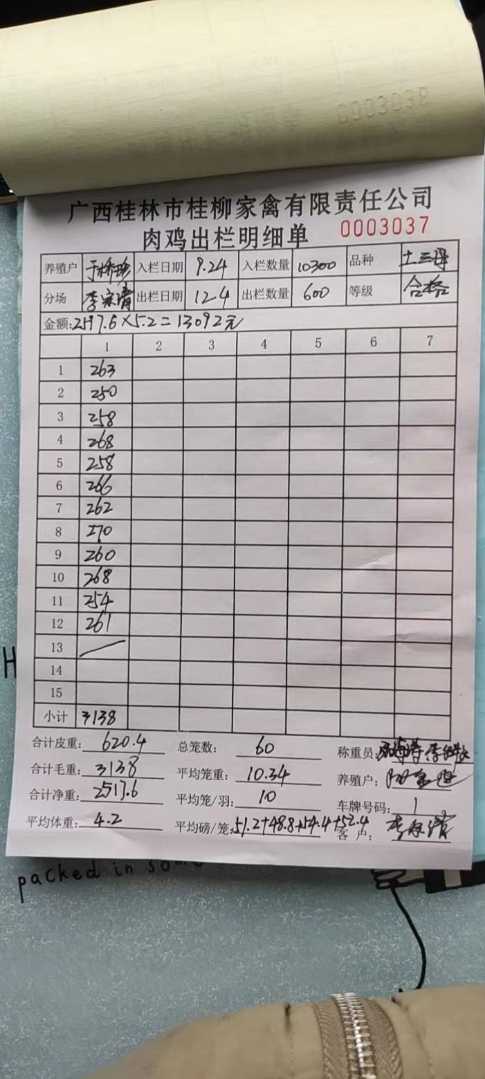 0003038
广西桂林市桂柳家禽有限责任公司
肉鸡出栏明细单 0003037
养殖户 入栏日期 9.24 入栏数量 10300 品种 土三
分场 出栏日期 12-4 出栏数量 600 等级 合格
金额: 2517.6×5.2=13092元
1 2 3 4 5 6 7
1 263
2 250
3 258
4 268
5 258
6 266
7 262
8 270
9 260
10 268
11 254
12 261
13
14
15
小计 3138
合计皮重: 620.4 总笼数: 60 称重员:
合计毛重: 3138 平均笼重: 10.34 养殖户:
合计净重: 2517.6 平均笼/羽: 10 车牌号码: 1
平均体重: 4.2 平均磅/笼: 51.2+48.8+54.4+52.4 客户:
packed in so